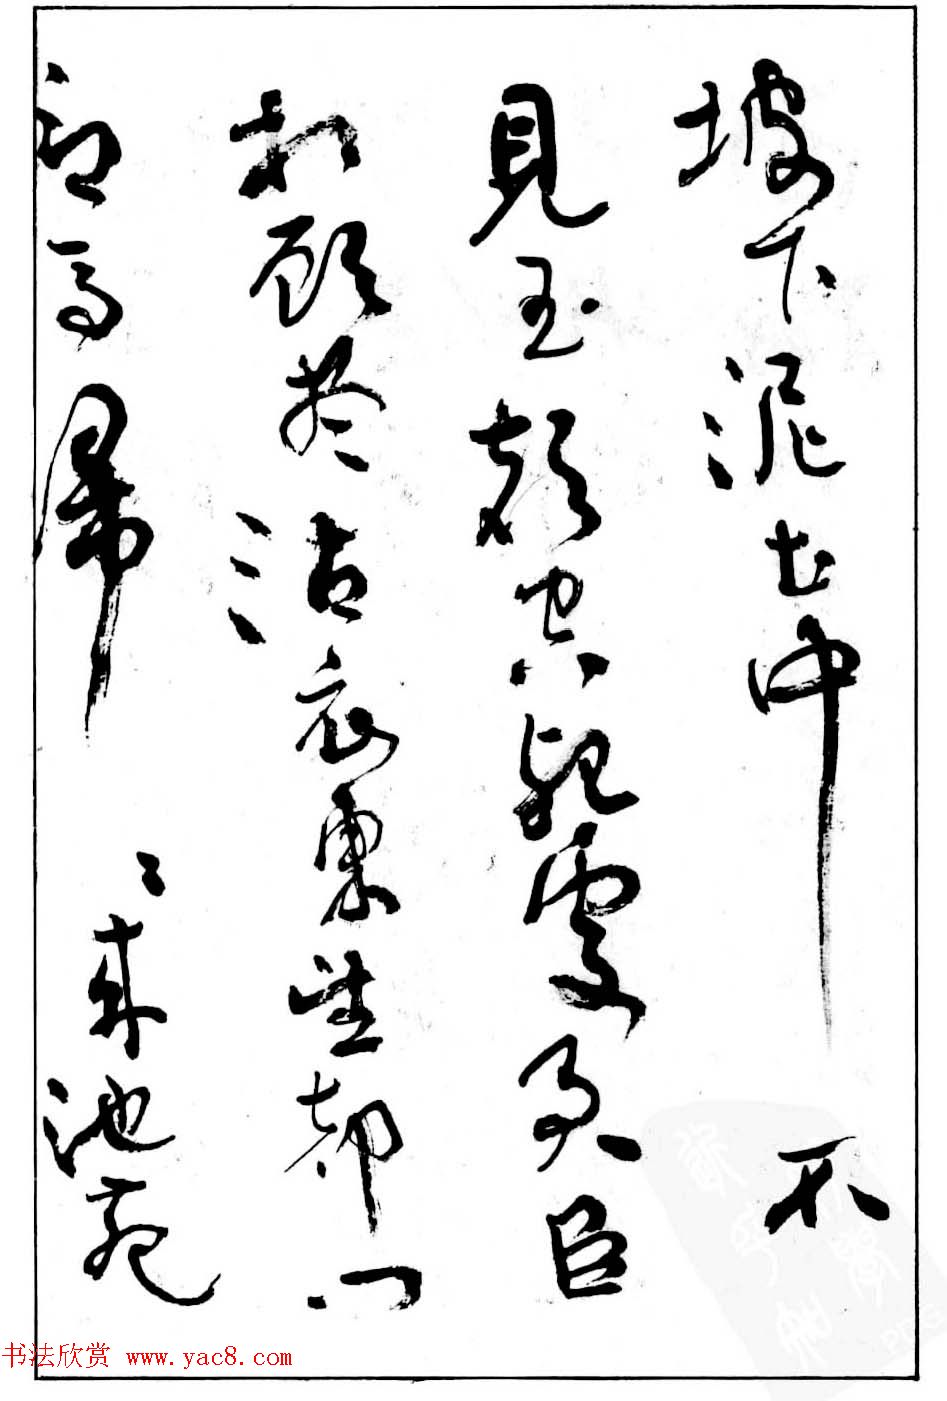 坡下泥土中不
見玉顔空死處君臣
相顧盡沾衣東望都門
信馬歸〻來池苑
书法欣赏 www.yac8.com